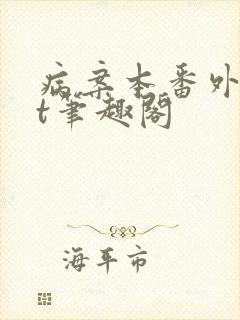 病案本番外
t笔趣阁
海平市